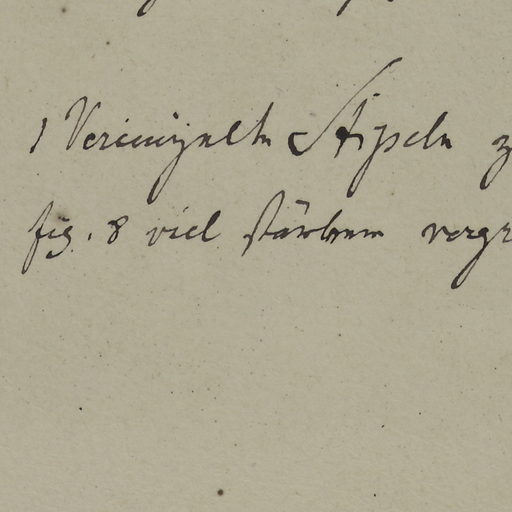 1 Vereinzelte Stipeln z
fig. 8 viel stärker vergr